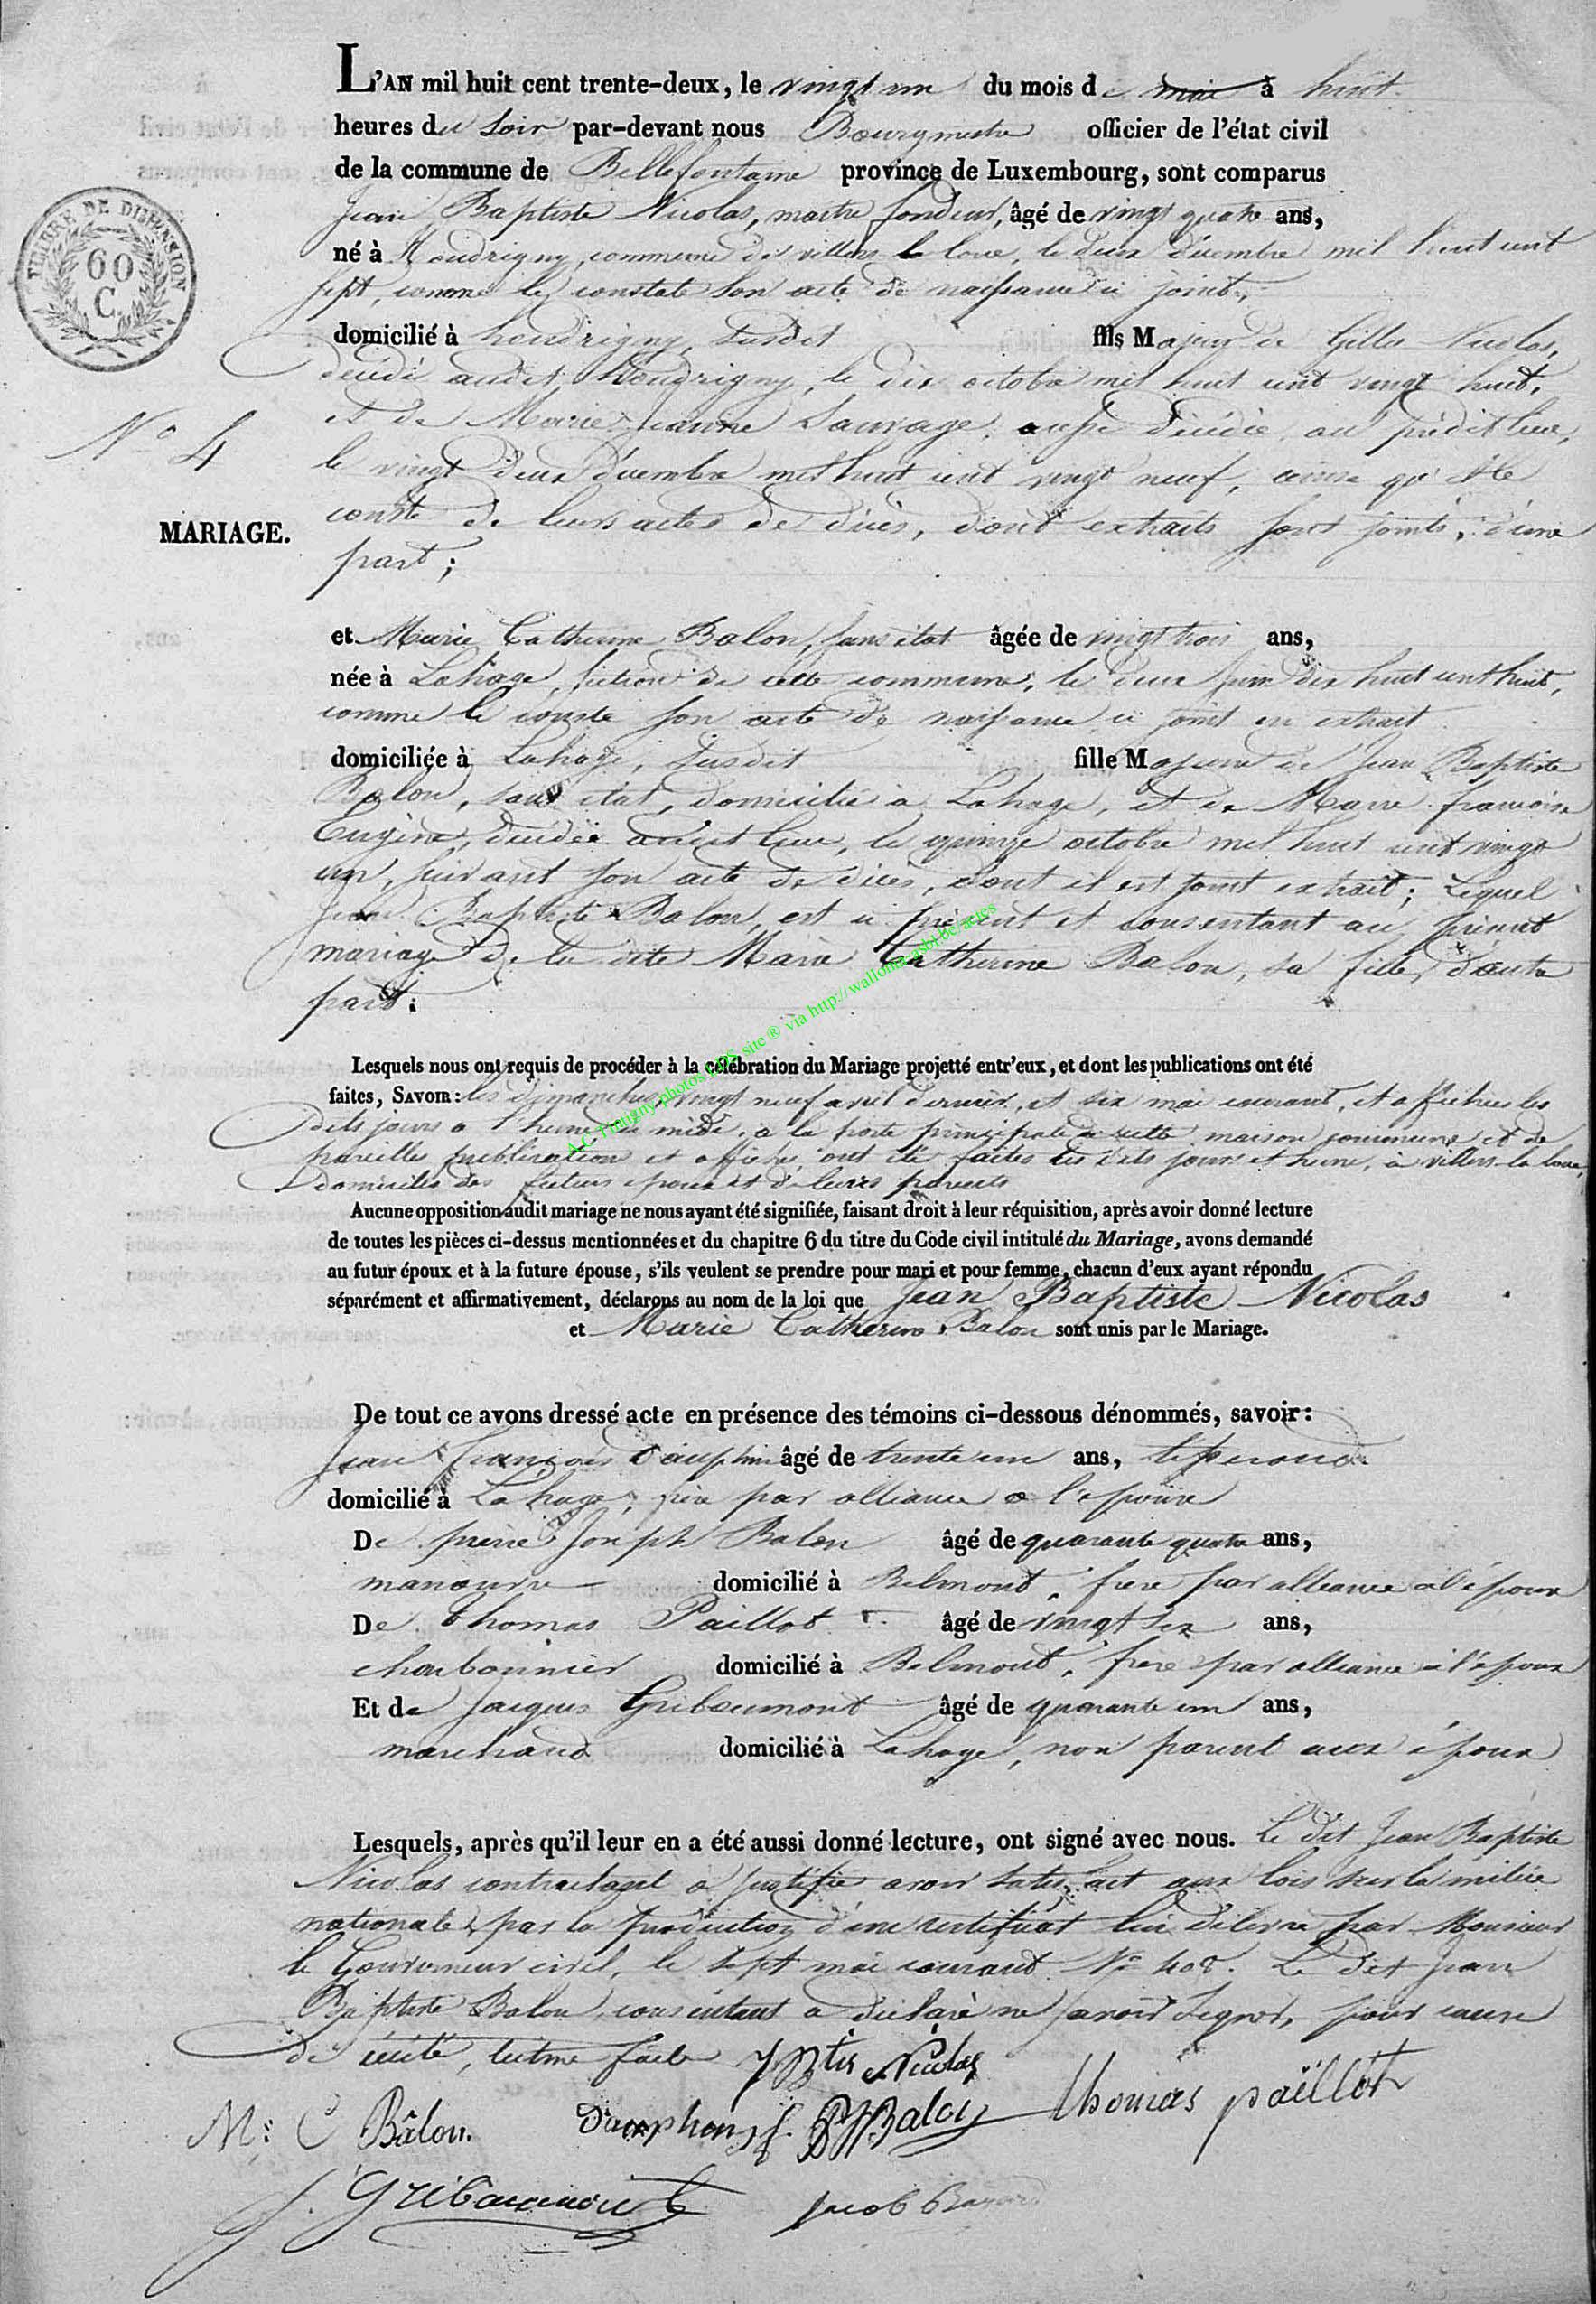 L'AN mil huit cent trente-deux, le vingt un du mois de mai à huit
heures du soir par-devant nous Bourgmestre officier de l'état civil
de la commune de Bellefontaine province de Luxembourg, sont comparus
Jean Baptiste Nicolas, maitre fondeur, âgé de vingt quatre ans,
né à houdrigny, commune de villers la loue, le deux décembre mil huit cent
sept, comme le constate son acte de naissance ci joint,
domicilié à houdrigny, susdit fils Majeur de Gilles Nicolas,
décédé audit houdrigny, le dix octobre mil huit cent vingt huit,
et de Marie Jeanne Sauvage, aussi décédée au prédit lieu,
le vingt deux décembre mil huit cent vingt neuf, ainsi qu'il
conste de leurs actes de décès, dont extraits sont joints, d'une
part;
TIMBRE DE DIMENSION
60
C.
N° 4
MARIAGE.
et Marie Catherine Balon, sans état âgée de vingt trois ans,
née à Lahage, section de cette commune, le deux juin dix huit cent huit,
comme le conste son acte de naissance ci joint en extrait
domiciliée à Lahage, susdit fille Majeure de Jean Baptiste
Balon, sans état, domicilié à Lahage, et de Marie françoise
Eugène, décédée audit lieu, le quinze octobre mil huit cent vingt
un, suivant son acte de décès, dont il est joint extrait; Lequel
Jean Baptiste Balon, est ci présent et consentant au présent
mariage de la dite Marie Catherine Balon, sa fille, d'autre
part.
A.C Tintigny photos site ® via http://wallonia-asbl.be/actes
Lesquels nous ont requis de procéder à la célébration du Mariage projetté entr'eux, et dont les publications ont été
faites, SAVOIR: les dimanches, vingt neuf avril dernier, et six mai courant, et affichées les
dits jours à l'heure de midi, à la porte principale de cette maison commune et de
pareilles publication et affiches ont été faites les dits jours et heure, à villers la loue,
domiciles des futurs époux et de leurs parents
Aucune opposition audit mariage ne nous ayant été signifiée, faisant droit à leur réquisition, après avoir donné lecture
de toutes les pièces ci-dessus mentionnées et du chapitre 6 du titre du Code civil intitulé du Mariage, avons demandé
au futur époux et à la future épouse, s'ils veulent se prendre pour mari et pour femme, chacun d'eux ayant répondu
séparément et affirmativement, déclarons au nom de la loi que Jean Baptiste Nicolas
et Marie Catherine Balon sont unis par le Mariage.
De tout ce avons dressé acte en présence des témoins ci-dessous dénommés, savoir:
Jean François Dauphin âgé de trente un ans, tisserand
domicilié à Lahage, frère par alliance à l'épouse
De pierre Joseph Balon âgé de quarante quatre ans,
manœuvre domicilié à Belmont, frere par alliance à l'époux
De thomas Paillot âgé de vingt six ans,
charbonnier domicilié à Belmont, frere par alliance à l'époux
Et de Jacques Gribaumont âgé de quarante un ans,
marchand domicilié à Lahage, non parent aux époux
Lesquels, après qu'il leur en a été aussi donné lecture, ont signé avec nous. Le dit Jean Baptiste
Nicolas contractant a justifié avoir satisfait aux lois sur la milice
nationale, par la production d'un certificat lui délivré par Monsieur
le Gouverneur civil, le sept mai courant N° 408. Le dit Jean
Baptiste Balon, consentant a déclaré ne savoir signer, pour cause
de cécité, lecture faite
J Bte Nicolas
M: C Bâlon. Dauphin J f. PJ Balon thomas païllot
J. Gribaumont Jacob